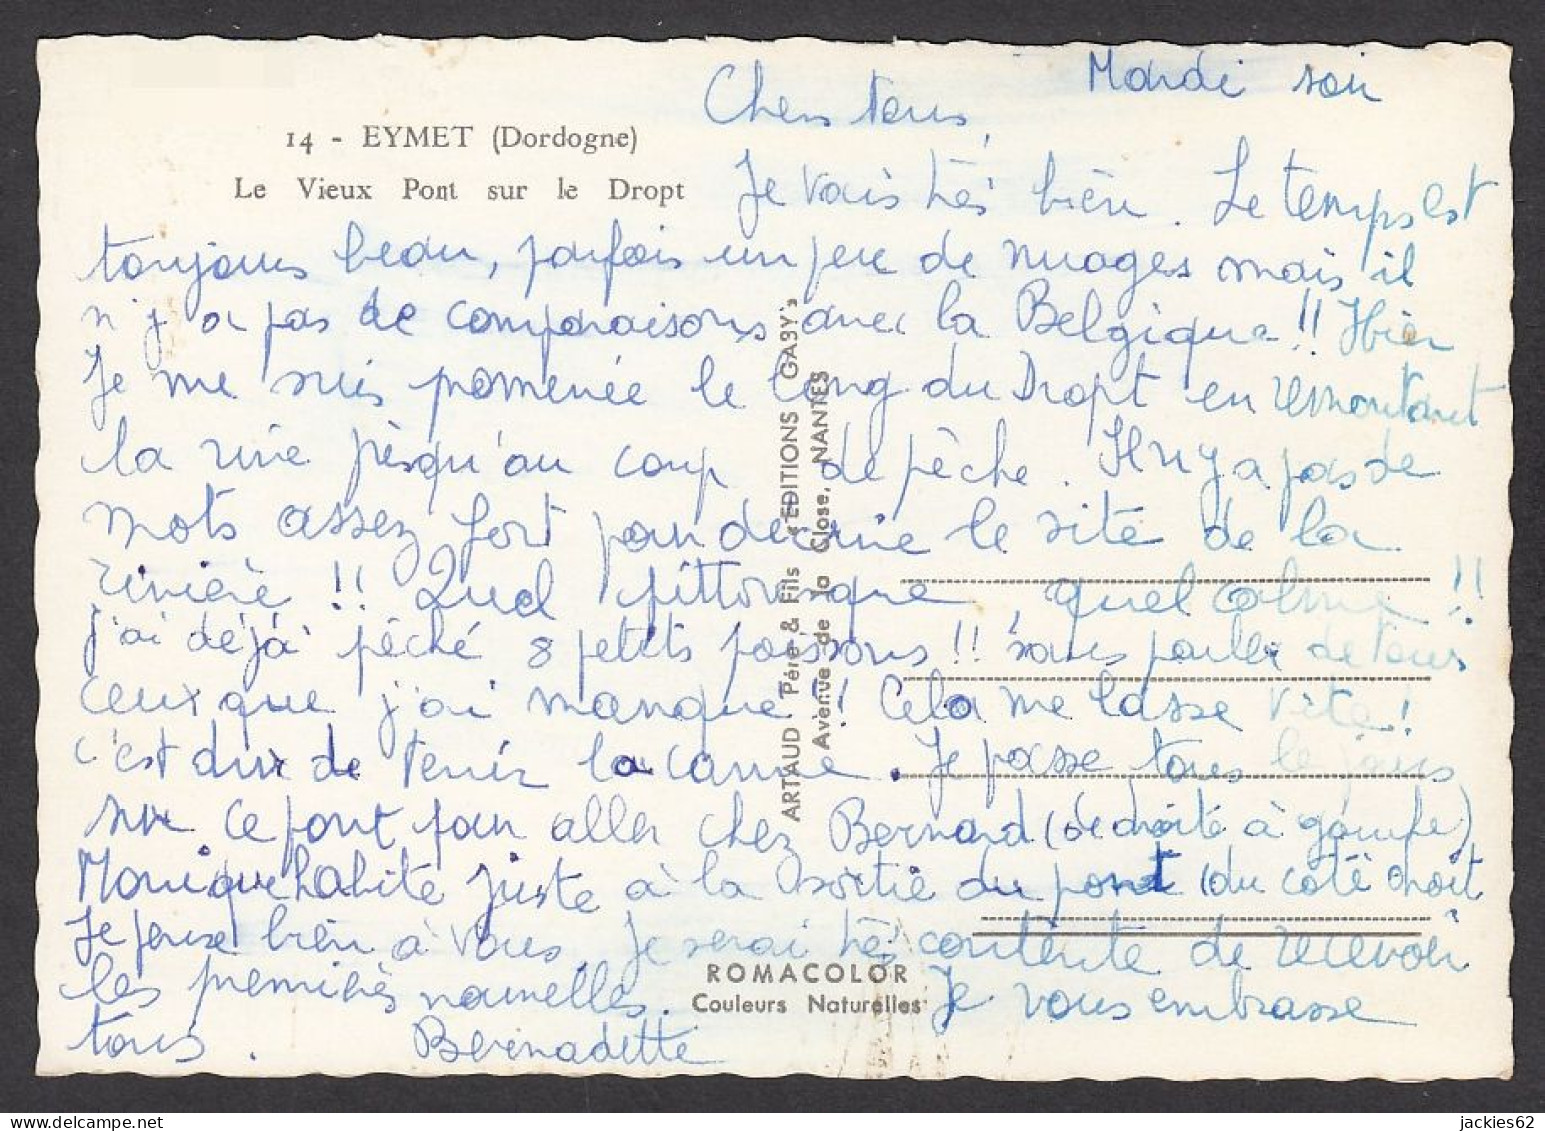 Mardi soir
Chers tous,
14 - EYMET (Dordogne)
Le Vieux Pont sur le Dropt
Je vais très bien. Le temps est
toujours beau, parfois un peu de nuages mais il
n'y a pas de comparaisons avec la Belgique !! Hier
Je me suis promenée le long du Dropt en remontant
la rive jusqu'au coup de pêche. Il n'y a pas de
mots assez fort pour décrire le site de la
rivière !! Quel pittoresque, quel calme !!
j'ai déjà pêché 8 petits poissons !! sans parler de tous
ceux que j'ai manqué !! Cela me lasse vite !
c'est dur de tenir la canne. Je passe tous les jours
sur ce pont pour aller chez Bernard (de droite à gauche)
Monique habite juste à la sortie du pont (du coté droit
Je pense bien à vous. Je serai très contente de recevoir
les premières nouvelles. Je vous embrasse
tous. Bernadette
ARTAUD Père & Fils «EDITIONS GABY»
Avenue de la Close, NANTES
ROMACOLOR
Couleurs Naturelles
jackies62